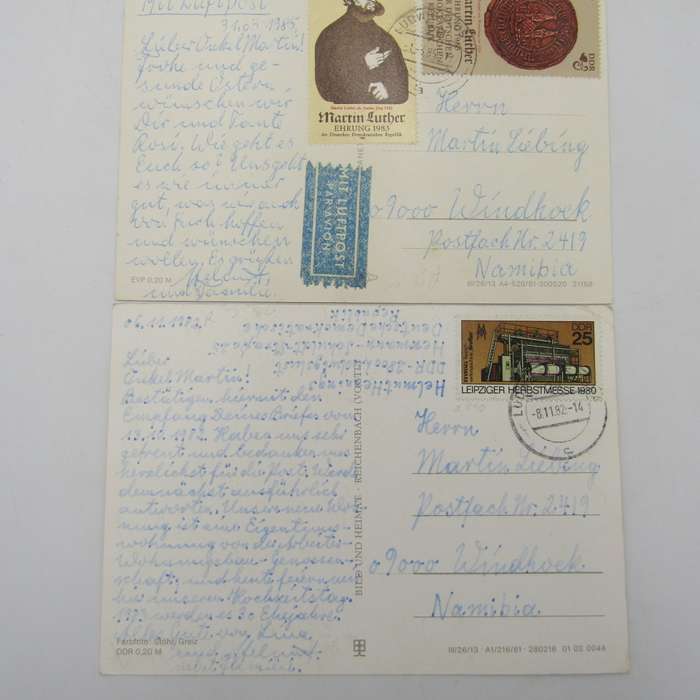 Mit Luftpost
31.03.1985
Lieber Onkel Martin!
Frohe und ge-
sunde Ostern
wünschen wir
Dir und Tante
Rosi. Wie geht es
Euch so? Uns geht
es wie immer
gut, was wir auch
von Euch hoffen
und wünschen
wollen. Es grüßen
Helmut
und Familie.
EVP 0,20 M
Martin Luther
EHRUNG 1983
der Deutschen Demokratischen Republik
DDR
MIT LUFTPOST
PAR AVION
Herrn
Martin Liebing
o 9000 Windhoek
Postfach Nr. 2419
Namibia
III/26/13 A4-529/81-300520
06.11.1982
Lieber
Onkel Martin!
Bestätigen hiermit den
Empfang Deines Briefes vom
13.10.1982. Haben uns sehr
gefreut und bedanken uns
herzlichst für die Post. Werde
demnächst ausführlich
antworten. Unsere neue Woh-
nung ist eine Eigentums-
wohnung von der Arbeiter-
Wohnungsbau-Genossen-
schaft, und heute feiern wir
hier unseren Hochzeitstag.
Farbfoto: Stöhr, Greiz
DDR 0,20 M
Helmut
DDR-
Hermann-
Deutsche Demokratische
Republik
BILD UND HEIMAT · REICHENBACH (VOGTL)
DDR
25
LEIPZIGER HERBSTMESSE 1980
-8.11.82-14
Herrn
Martin Liebing
Postfach Nr. 2419
o 9000 Windhoek
Namibia
III/26/13 A1/216/81 280216 01 03 004